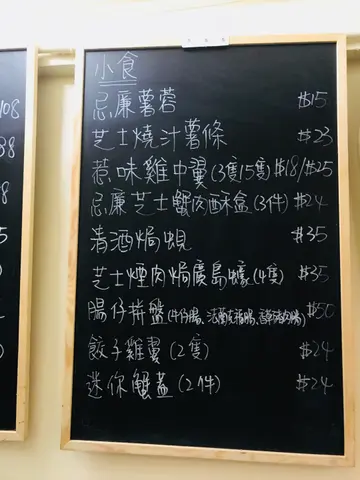 108
小食
忌廉薯蓉 $15
芝士燒汁薯條 $23
惹味雞中翼(3隻/5隻) $18/$25
忌廉芝士蟹肉酥盒(3件) $24
清酒焗蜆 $35
芝士煙肉焗廣島蠔(4隻) $35
腸仔拼盤 $50
餃子雞翼(2隻) $24
迷你蟹蓋(2件) $24